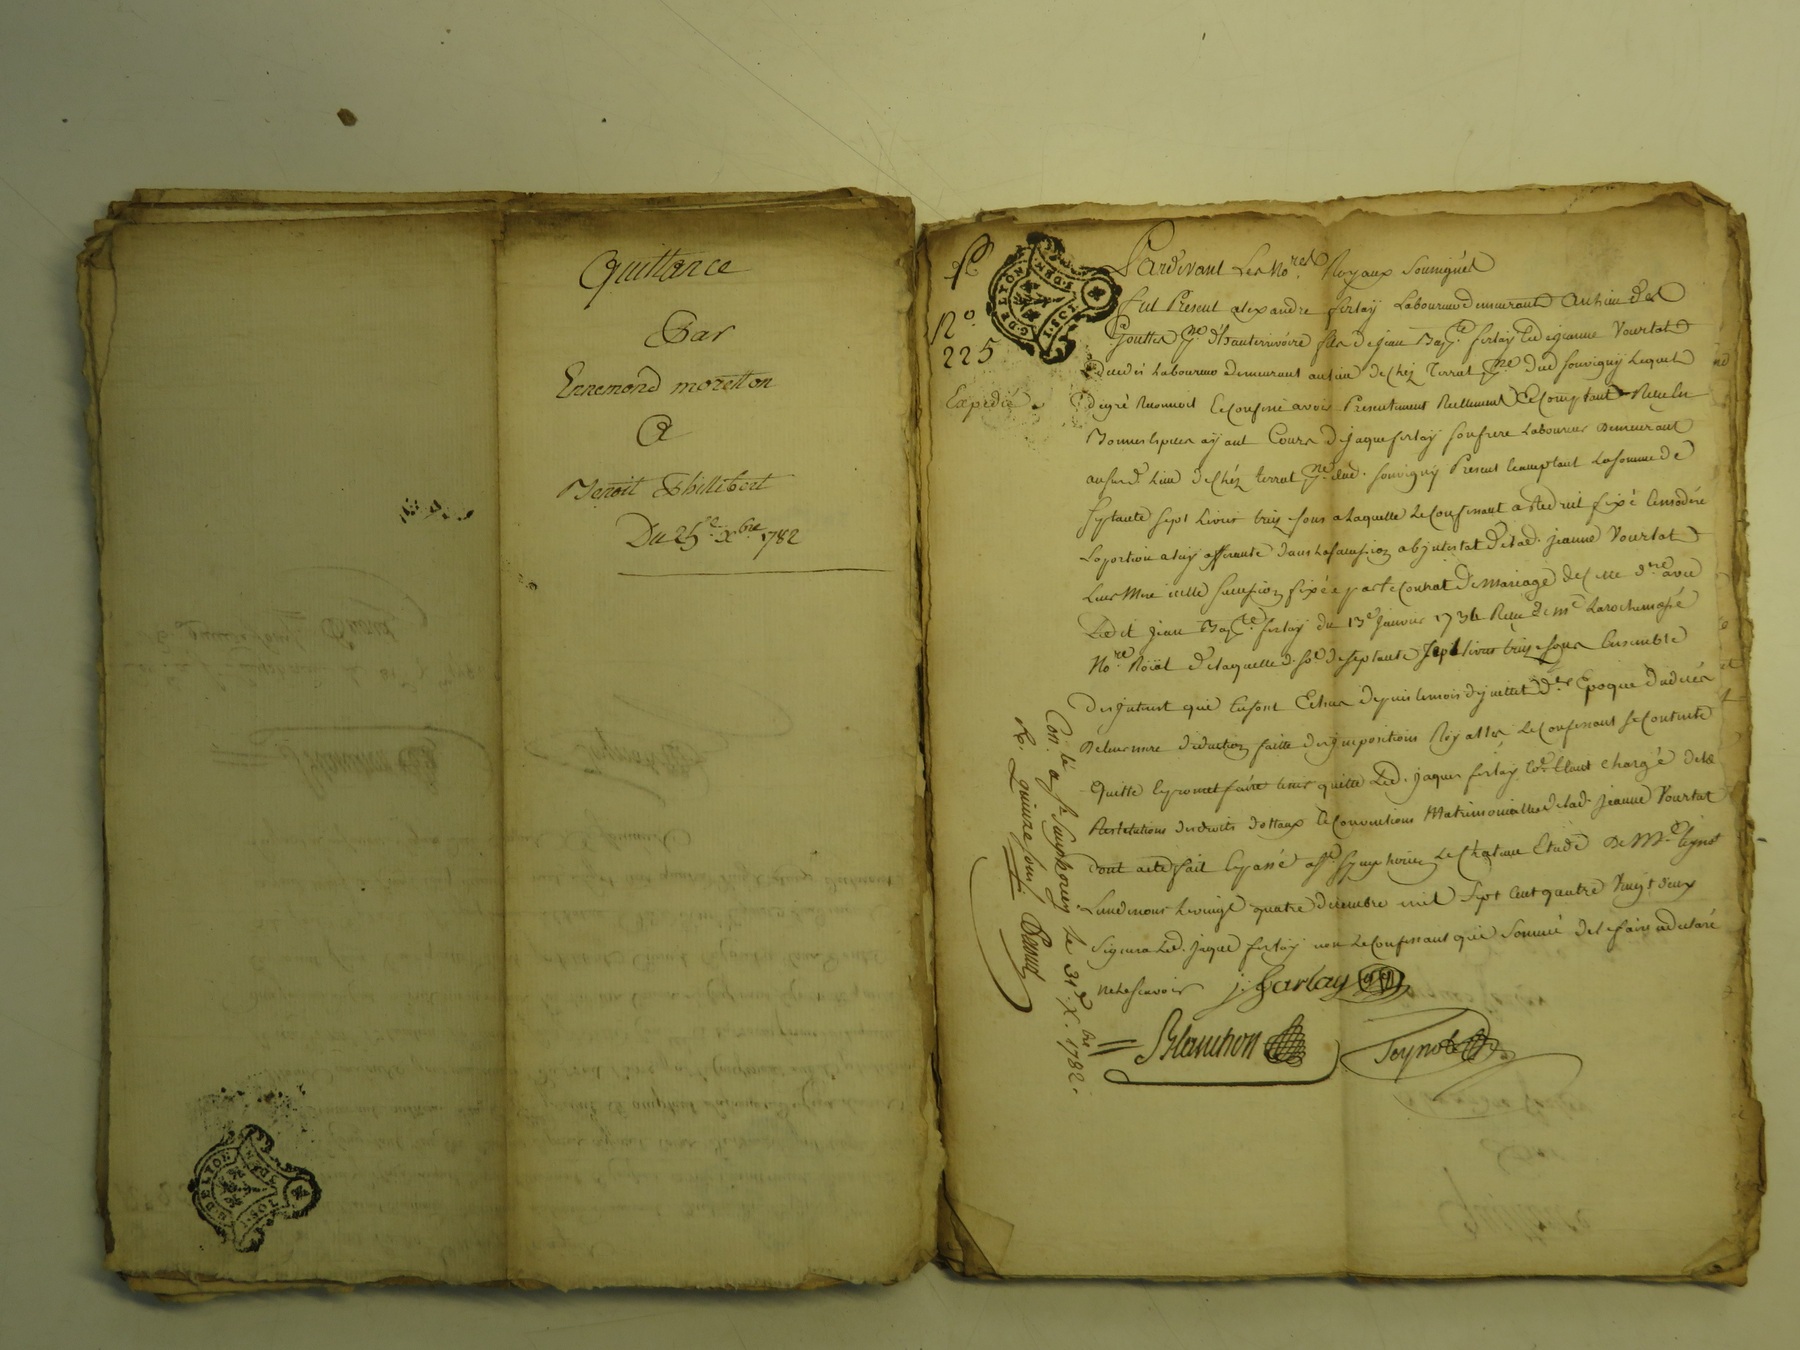 Quittance
Par
Ennemond moretton
A
Benoit Phillibert
Du 25e. Xbre. 1782
G. DE LYON
1. SOL
N.º
225
Expedié
G. DE LYON
1. SOL
Pardevant Les No.res Royaux Soussignés
fut Present alexandre ferlay Laboureur demeurant au lieu des
Gouttes p.sse d'hauterrivoire fils de jean Bap.te ferlay et de jeanne Vourlat
decedés Laboureur demeurant au lieu de chez Terrat p.sse dud souvigny Lequel
de gré Reconnoit et confesse avoir Presentement Réellement et comptant Receu en
Bonnes Especes ayant Cours de jaque ferlay son frere Laboureur Demeurant
au susd. Lieu de chéz terrat p.sse dud. souvigny Present et acceptant La somme de
septante sept Livres treize sous a Laquelle Le confessant a Reduit fixé et modéré
La portion a luy afferante dans La succession abjntestat de lad. jeanne Vourlat
Leur Mere icelle succession fixée par le Contrat de mariage de cette d.re avec
Ledit jean Bap.te ferlay du 13e janvier 1736 Receu Me Larochemasié
No.re Roïal de laquelle d. so.e de septante sept livres treize sous Ensemble
Des jnterest qui En sont Echus depuis le mois de juillet d.er Epoque du decés
De leur mere deduction faitte des jmpositions Royalles Le confessant se contente
Quitte et promet faire tenir quitte Led. jaques ferlay co.e Etant chargé de la
Restitutions des droits dottaux et conventions Matrimonialles de lad. jeanne Vourlat
Dont acte fait et passé a St Symphorien Le Chateau Etude De Me Teynot
L'un de nous Le vingt quatre decembre mil Sept Cent quatre Vingt deux
Signera Led. jaque ferlay non Le confessant qui Sommé de le faire a declaré
ne Le scavoir j: ferlay
Blanchon Teynot
Con.lé a St. Simphorien le 31. Xbre. 1782.
R. Quinze sous